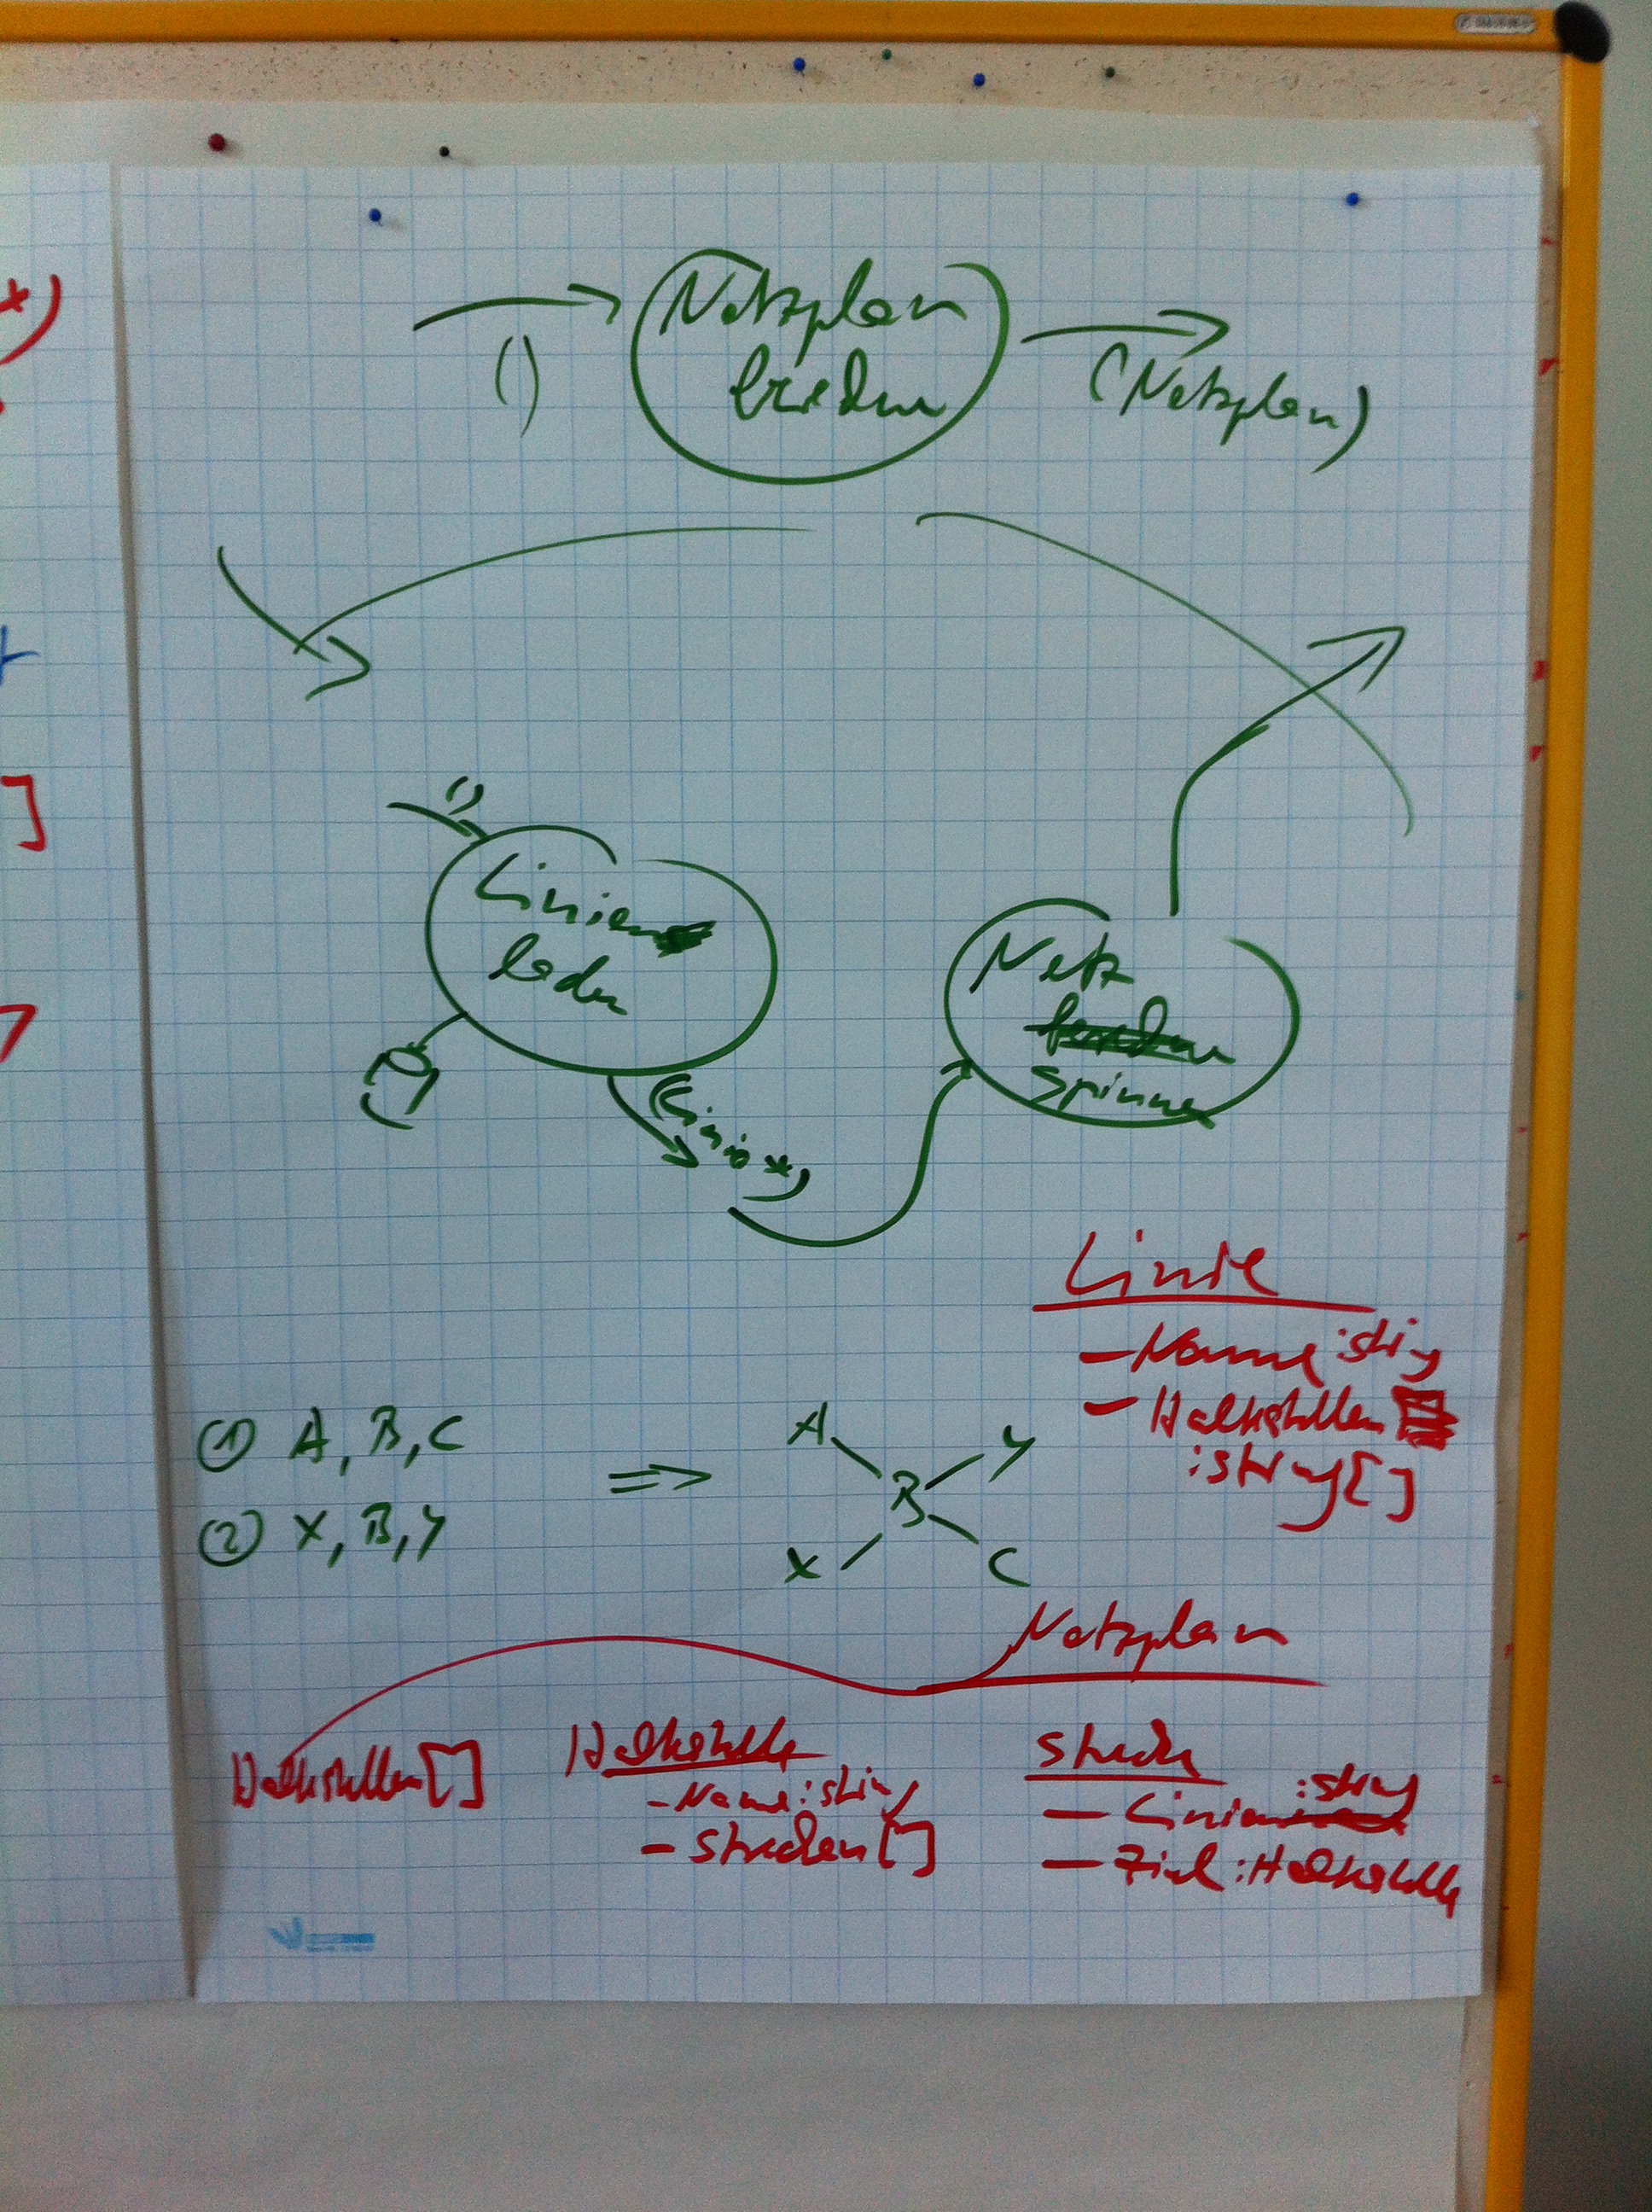 Netzplan
()
(Netzplan)
()
Linien
laden
Netz
spinnen
(Linie*)
Linie
- Name :string
- Haltestellen
:string[]
① A, B, C
② X, B, Y
=>
A
Y
B
X
C
Netzplan
Haltestellen[]
Haltestelle
- Name :string
- Strecken[]
Strecke
- Linien :string
- Ziel :Haltestelle
*)
]